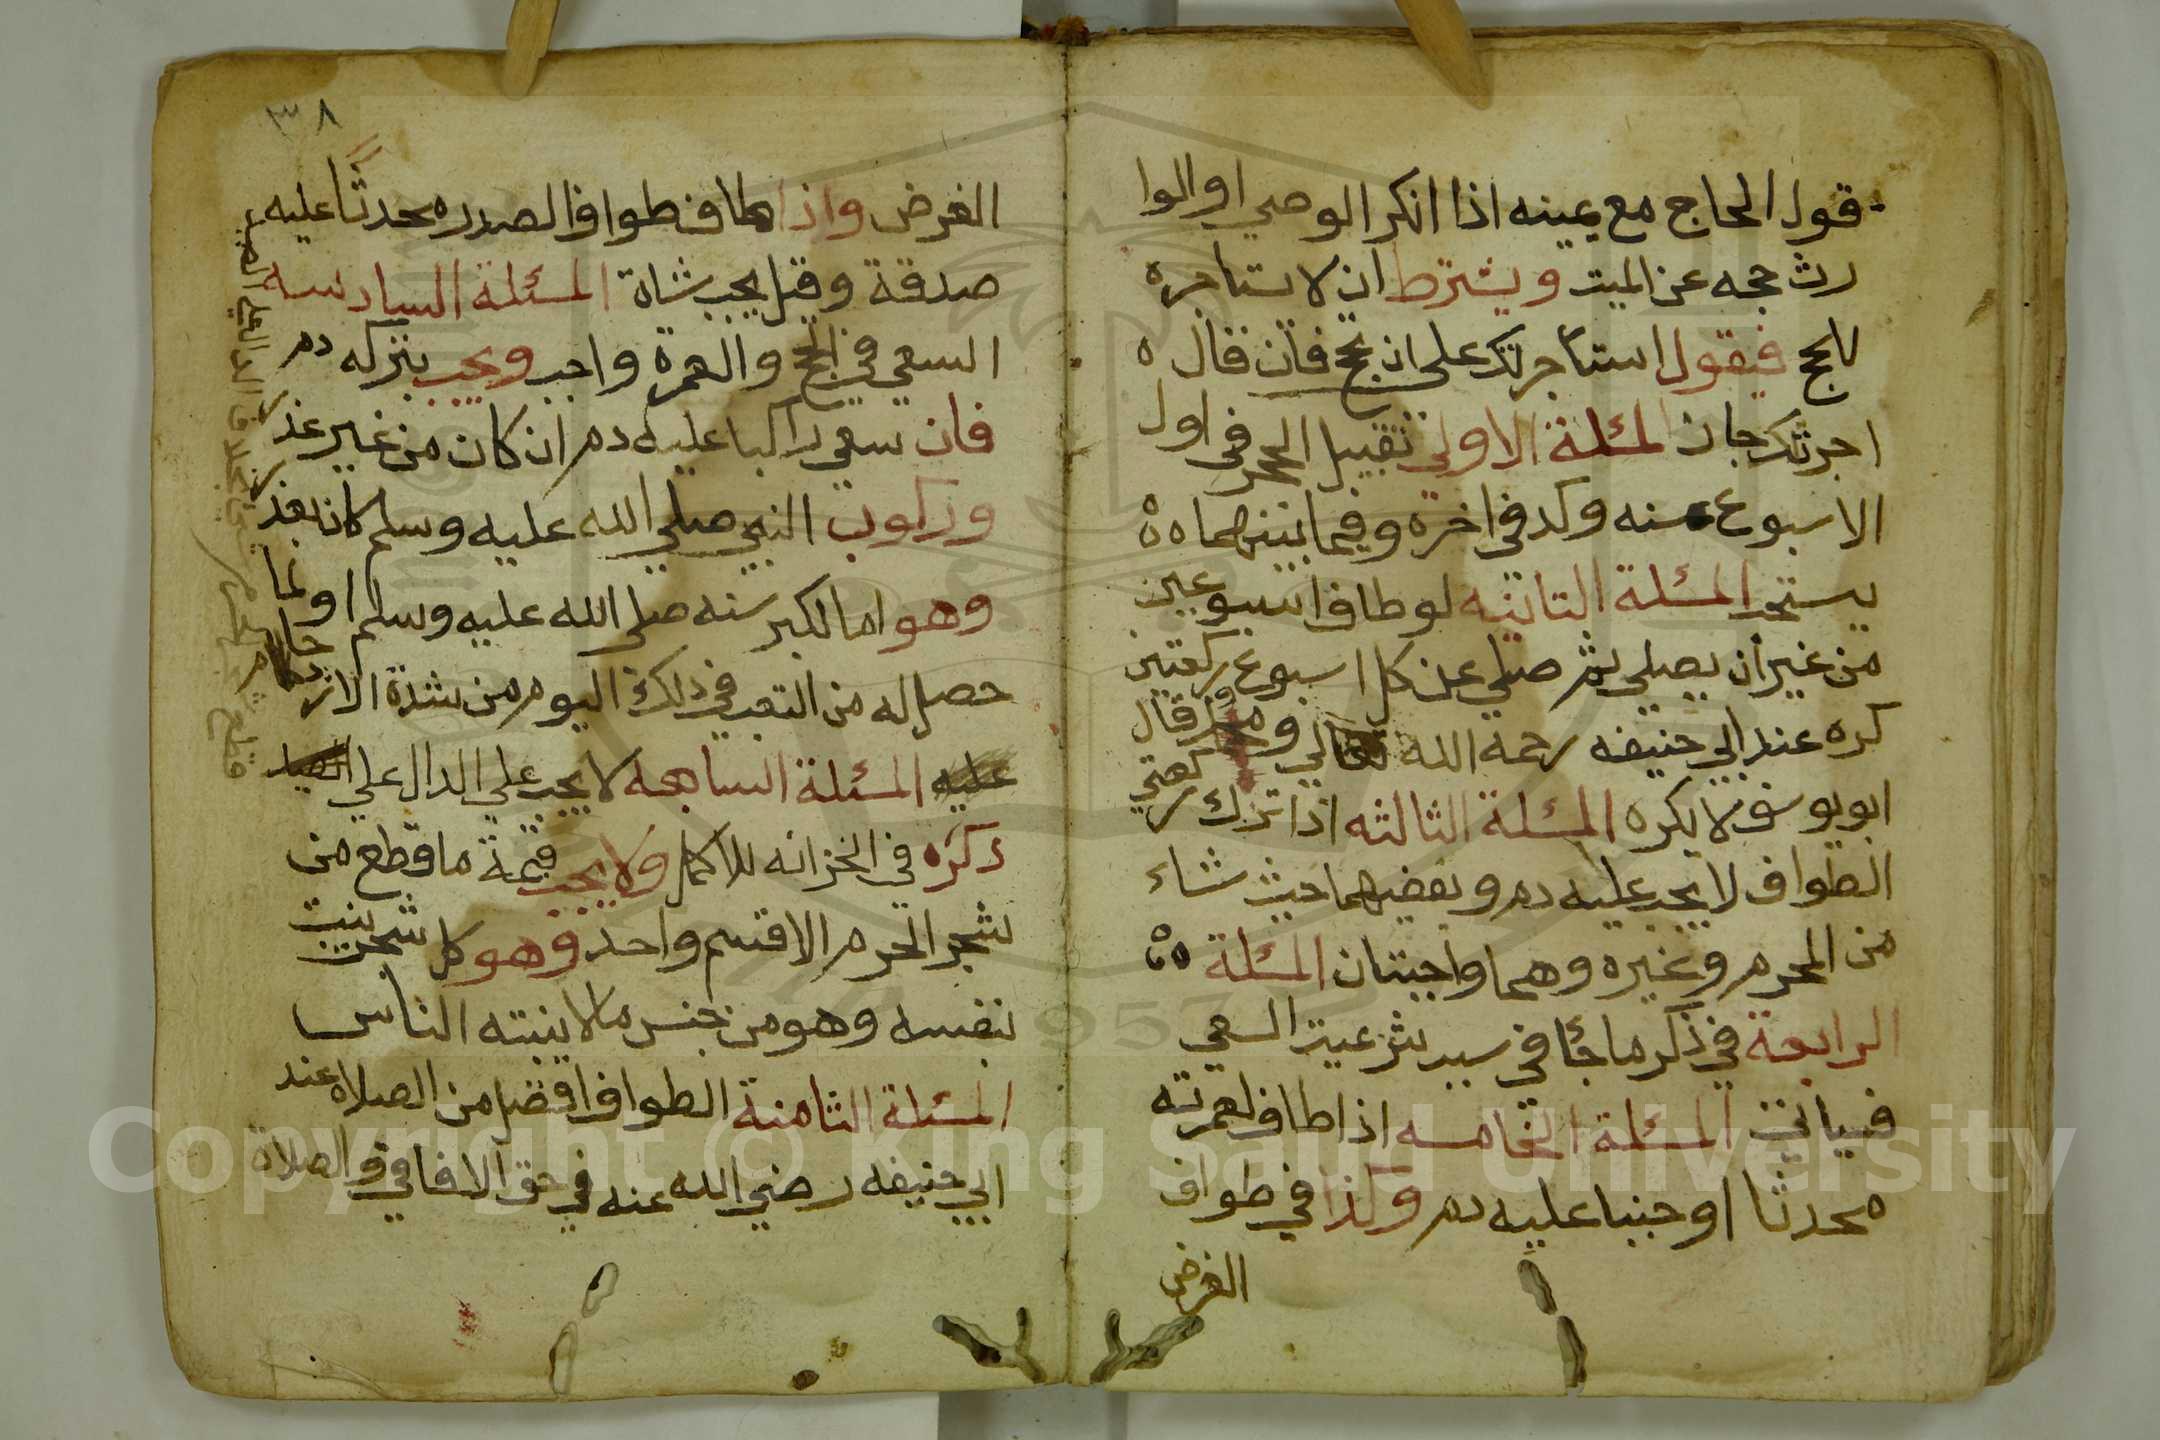 قول الحاج مع يمينه اذا انكر الوصي او الوا
رث حجه عن الميت ويشترط ان لا يستاجره
للحج فيقول استاجرتك على ان تحج فان قال ه
اجرتك جاز المسئلة الاولى تقبيل الحجر في اول
الاسبوع سنه وكد في اخره وفيما بينهما ه ه
يستحب المسئلة الثانيه لو طاف اسبوعين
من غير ان يصلي ثم صلي عن كل اسبوع ركعتين
كره عند ابي حنيفه رحمه الله تعالي ومحمد وقال
ابو يوسف لا يكره المسئلة الثالثه اذا ترك ركعتي
الطواف لا يجب عليه دم ويقضيهما حيث شاء
من الحرم وغيره وهما واجبتان المسئلة ه ه
الرابعة في ذكر ما جٔا في سبب شرعيت السعي
فسياتي المسئلة الخامسه اذا طاف لعمرته
محدثا او جنبا عليه دم وكذا في طواف
الفرض
٣٨
الفرض واذا طاف طواف الصدر محدثا عليه
صدقة وقيل يجب شاة المسئلة السادسه
السعي في الحج والعمرة واجب ويجب بتركه دم
فان سعي راكبا عليه دم ان كان من غير عذر
وركوب النبي صلي الله عليه وسلم كان بعذر
وهو اما لكبر سنه صلى الله عليه وسلم او لما
حصل له من التعب في ذلك اليوم من شدة الازدحام
عليه المسئلة السابعه لا يجب علي الدال علي الصيد
ذكره في الخزانه للاكمل ولا يجب قيمة ما قطع من
شجر الحرم الا قسم واحد وهو كل شجر ينبت
بنفسه وهو من جنس ما لا ينبته الناس
المسئلة الثامنة الطواف افضل من الصلاه عند
ابي حنيفه رضي الله عنه في حق الافاقي والصلاة
Copyright © King Saud University
1957